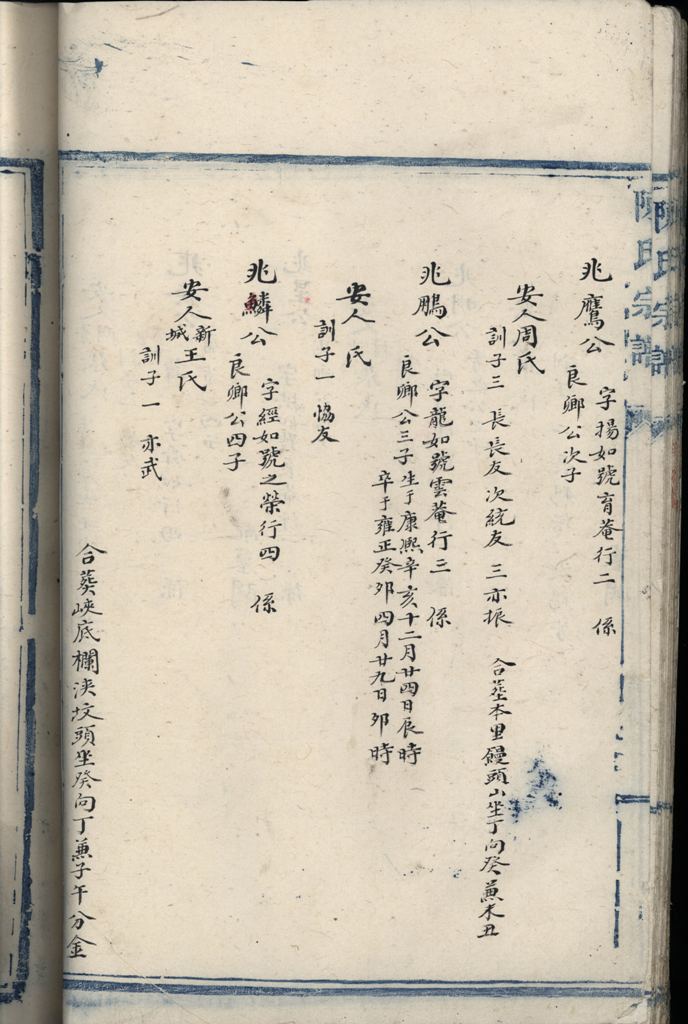 陳氏宗譜
兆鷹公 字揚如號育菴行二 係
良卿公次子
安人周氏
訓子三 長長友 次統友 三亦振 合葬本里饅頭山坐丁向癸兼未丑
兆鵬公 字龍如號雲菴行三 係
良卿公三子 生于康熙辛亥十二月廿四日辰時
卒于雍正癸夘四月廿九日夘時
安人 氏
訓子一 恊友
兆鱗公 字經如號之榮行四 係
良卿公四子
安人新城王氏
訓子一 亦武
合葬峽底欄浹坟頭坐癸向丁兼子午分金